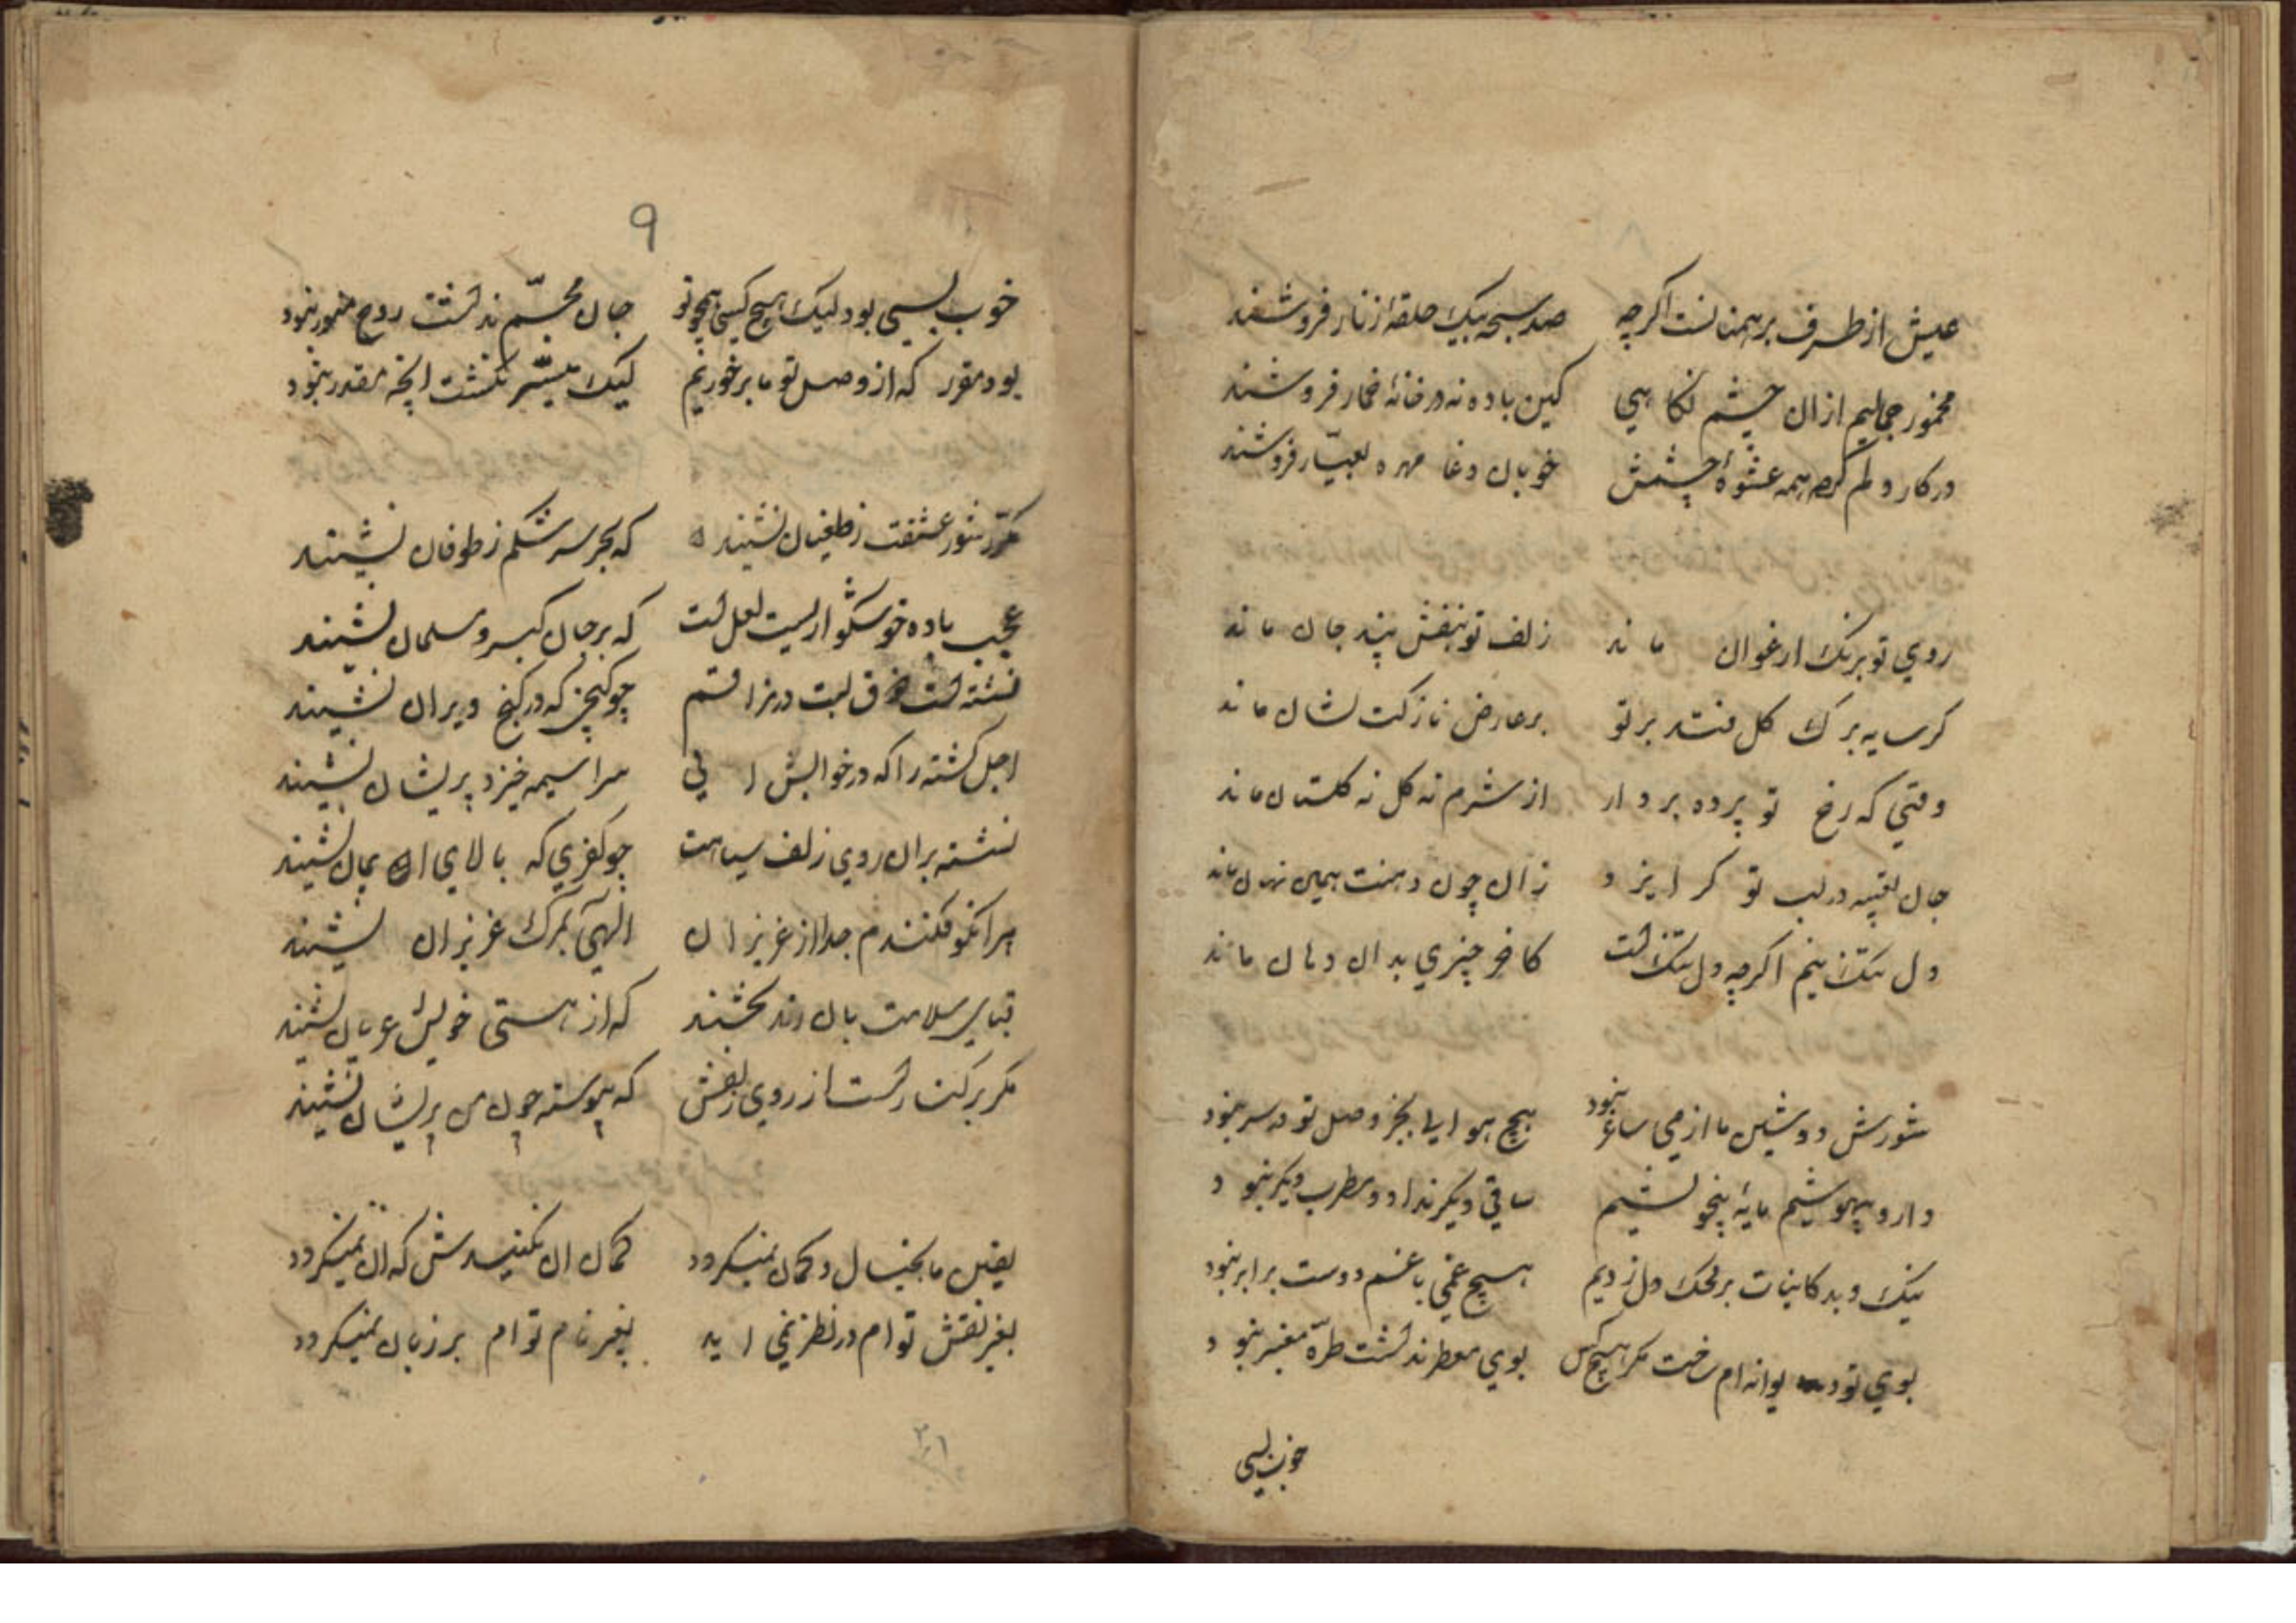 عیش از طرف برهمنانست اکرچه صد سبحه بیک حلقهٔ زنار فروشند
مخمور جمالیم ازان چشم نکاهی کین باده نه در خانهٔ خمار فروشند
در کار دلم کرد همه عشوهٔ چشمش خوبان دغا مهره بعیار فروشند
روی تو برنک ارغوان ماند زلف تو بنفش
کر سایه برک کل فتد بر تو بر عارض نازکت نشان ماند
وقتی که رخ تو پرده بردارد از شرم نه کل نه کلستان ماند
جان در لب تو کر زان چون دهنت همین نهان ماند
دل تنک نیم اکرچه دل تنکست کاخر چیزی بدان دهان ماند
شورش دوشین ما از می ساغر نبود هیچ هوایی بجز وصل تو در سر نبود
داروی بیهوشیم مایهٔ بیخویشیم ساقی دیکر نداد و مطرب دیکر نبود
نیک و بد کاینات بر محک دل زدیم هیچ غمی با غم دوست برابر نبود
بوی تو دیوانه ام ساخت مکر هیچ کس بوی معطر نداشت طرهٔ معنبر نبود
خوب بسی
۹
خوب بسی بود لیک هیچ کسی همچو تو جان مجسم نداشت روح مصور نبود
بود مقرر که از وصل تو ما برخوریم لیک میسر نکشت انچه مقدر نبود
مکر شور عشقت ز طغیان نشیند که بحر سرشکم ز طوفان نشیند
عجب باده خوشکواریست لعل لبت که بر جان کبر و مسلمان نشیند
نشسته است لبت درنزاقتم چو کنجی که در کنج ویران نشیند
اجل کشته را که در خوابش ایی سراسیمه خیزد پریشان نشیند
نشسته بران روی زلف سیاهت چو کفری که بالای ایمان نشیند
هرانکو فکندم جدا از عزیزان الهی بمرک عزیزان نشیند
قبای سلامت بان رند بخشند که از هستی خویش عریان نشیند
مکر برکت رست از روی زلفش که پیوسته چون من پریشان نشیند
یقین ما بخیال و کمان نمیکردد کمان ان نکنیدش که ان نمیکردد
بغیر نقش توام در نظر نمی اید بغیر نام توام بر زبان نمیکردد